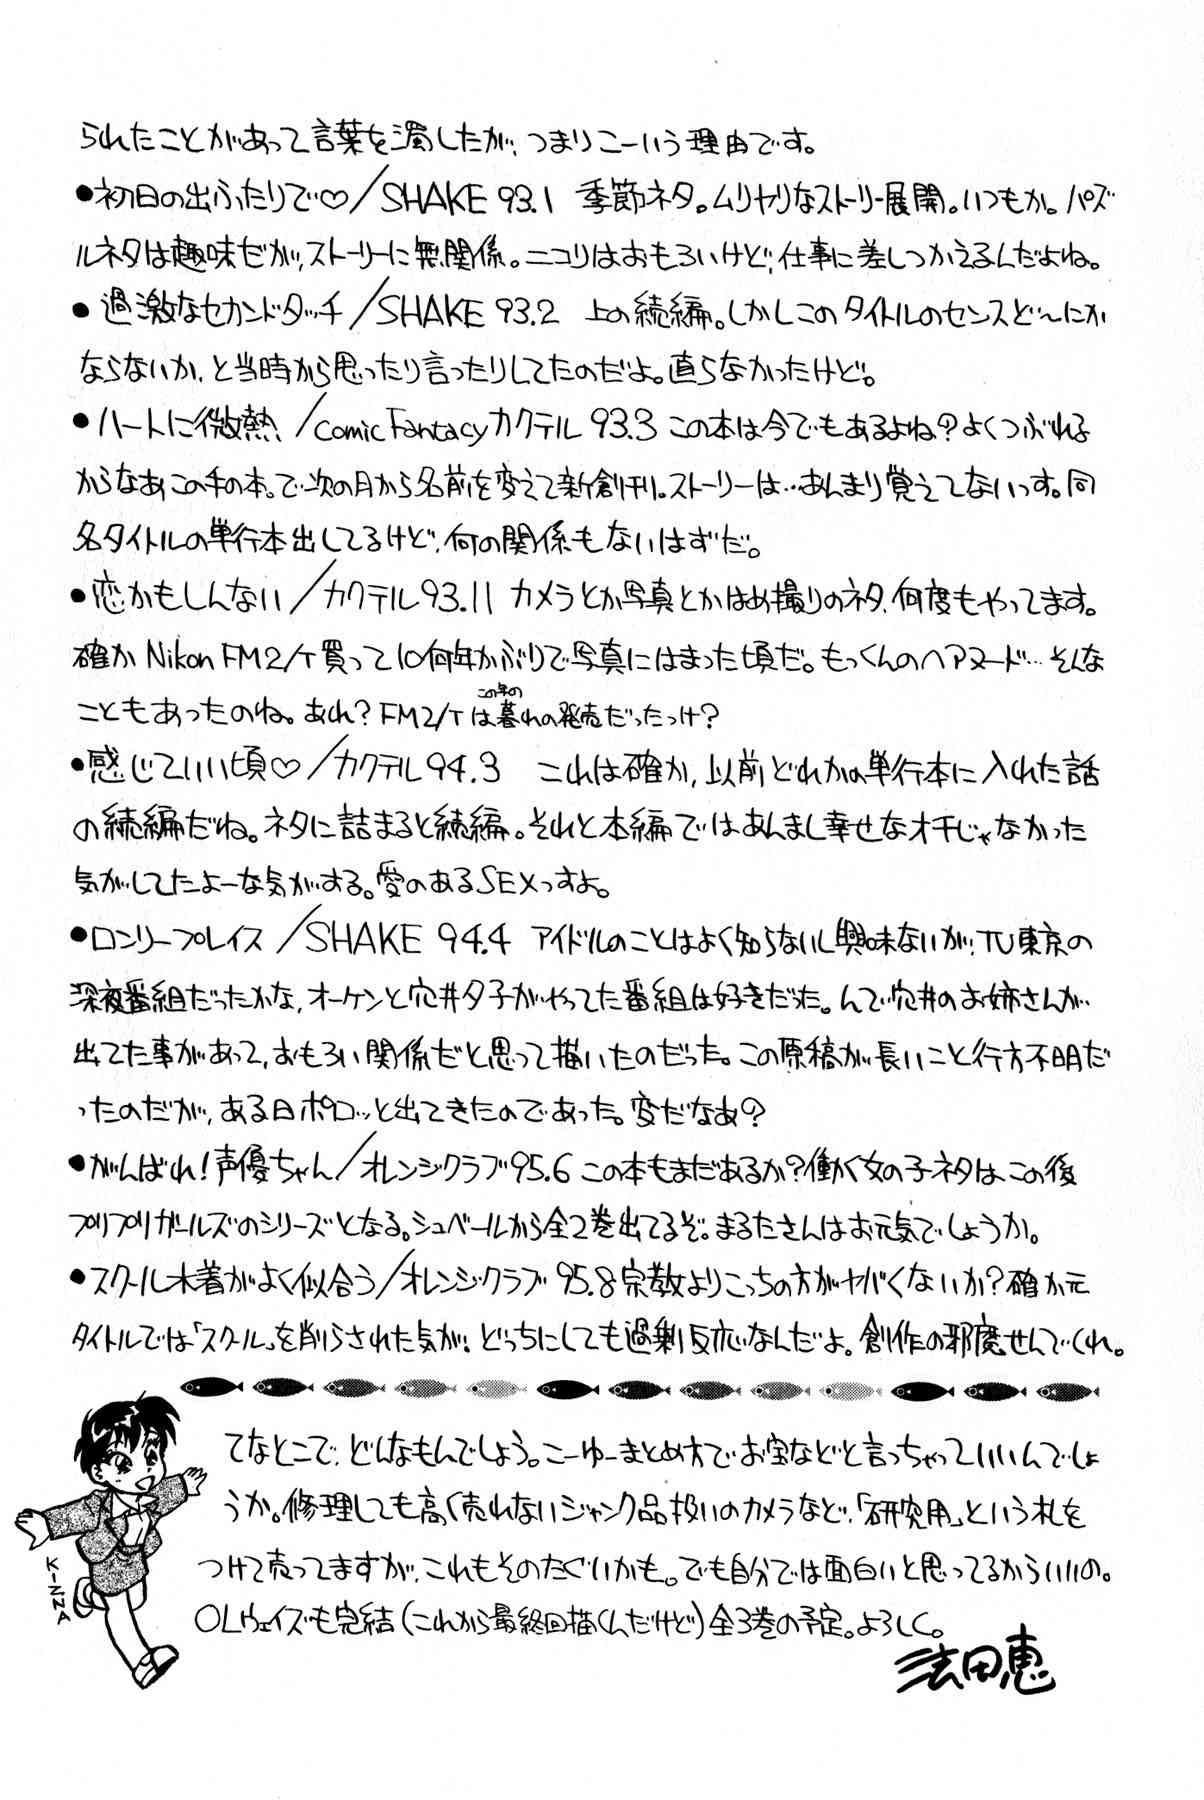 られたことがあって言葉を濁したが、つまりこーいう理由です。
●初日の出ふたりで♡/SHAKE 93.1 季節ネタ。ムリヤリなストーリー展開。いつもか。パズ
ルネタは趣味だが、ストーリーに無関係。ニコリはおもろいけど、仕事に差しつかえるんだよね。
●過激なセカンドタッチ/SHAKE 93.2 上の続編。しかしこのタイトルのセンスど〜にか
ならないか、と当時から思ったり言ったりしてたのだよ。直らなかったけど。
●ハートに微熱/Comic Fantasyカクテル 93.3 この本は今でもあるよね?よくつぶれる
からなあこの手の本。で次の月から名前を変えて新創刊。ストーリーは…あんまり覚えてないっす。同
名タイトルの単行本出してるけど、何の関係もないはずだ。
●恋かもしんない/カクテル93.11 カメラとか写真とかはめ撮りのネタ、何度もやってます。
確かNikon FM2/T買って10何年かぶりで写真にはまった頃だ。もっくんのヘアヌード…そんな
こともあったのね。あれ?FM2/Tはこの年の暮れの発売だったっけ?
●感じていい頃♡/カクテル94.3 これは確か、以前どれかの単行本に入れた話
の続編だね。ネタに詰まると続編。それと本編ではあんまし幸せなオチじゃなかった
気がしてたよーな気がする。愛のあるSEXっすよ。
●ロンリープレイス/SHAKE 94.4 アイドルのことはよく知らないし興味ないが、TV東京の
深夜番組だったかな、オーケンと穴井夕子がやってた番組は好きだった。んで穴井のお姉さんが
出てた事があって、おもろい関係だと思って描いたのだった。この原稿が長いこと行方不明だ
ったのだが、ある日ポロッと出てきたのであった。変だなあ?
●がんばれ!声優ちゃん/オレンジクラブ95.6 この本もまだあるか?働く女の子ネタは、この後
プリプリガールズのシリーズとなる。シュベールから全2巻出てるぞ。まるたさんはお元気でしょうか。
●スクール水着がよく似合う/オレンジクラブ 95.8 宗教よりこっちの方がヤバくないか?確か元
タイトルでは「スクール」を削らされた気が!どっちにしても過剰反応なんだよ。創作の邪魔せんでくれ。
てなとこで、どんなもんでしょう。こーゆーまとめ方でお宝などと言っちゃっていいんでしょ
うか。修理しても高く売れないジャンク品扱いのカメラなど、「研究用」という札を
つけて売ってますが、これもそのたぐいかも。でも自分では面白いと思ってるからいいの。
OLウェイズも完結(これから最終回描くんだけど)全3巻の予定。よろしく。
法田恵
KIZNA